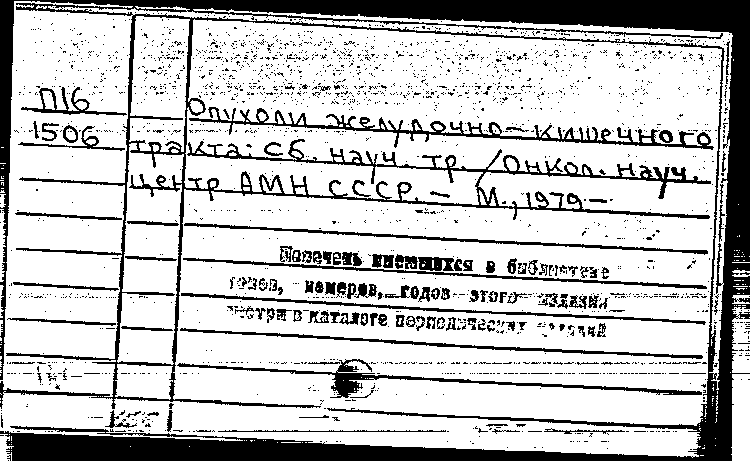 П16
1506
Опухоли желудочно-кишечного
тракта: Сб. науч. тр. /Онкол. науч.
центр АМН СССР. — М., 1979 —
Перечень имеющихся в библиотеке
томов, номеров, годов этого издания
смотри в каталоге периодических изданий